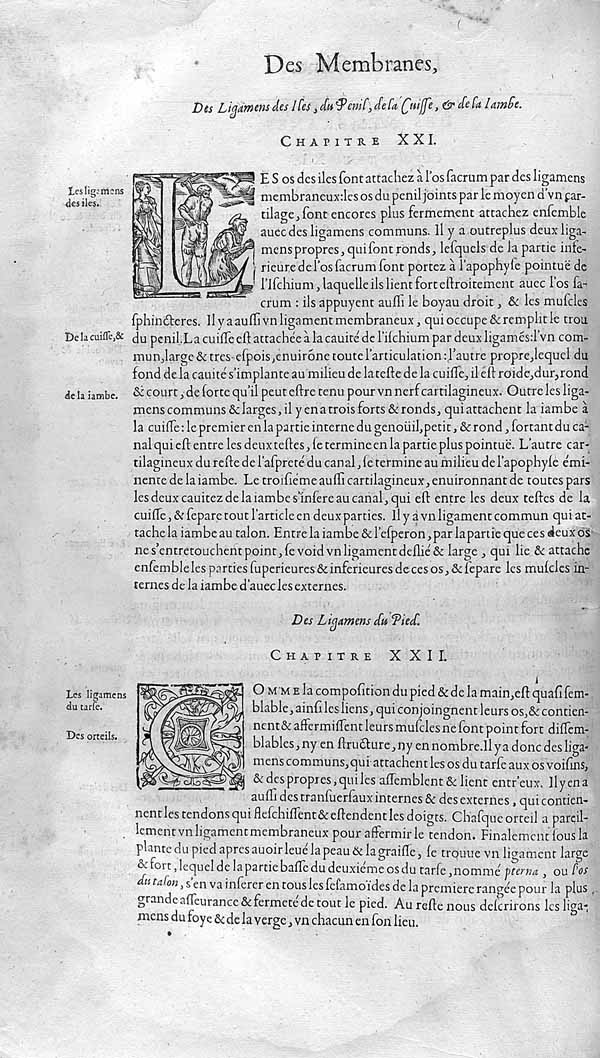 Des Membranes,
Des Ligamens des Iles, du Penil, de la Cuiſſe, & de la Iambe.
CHAPITRE XXI.
Les ligamens
des iles.
LES os des iles ſont attachez à l'os ſacrum par des ligamens
membraneux: les os du penil joints par le moyen d'vn car-
tilage, ſont encores plus fermement attachez enſemble
auec des ligamens communs. Il y a outreplus deux liga-
mens propres, qui ſont ronds, leſquels de la partie infe-
rieure de l'os ſacrum ſont portez à l'apophyſe pointuë de
l'Iſchium, laquelle ils lient fort eſtroitement auec l'os ſa-
crum : ils appuyent auſſi le boyau droit, & les muſcles
ſphincteres. Il y a auſſi vn ligament membraneux, qui occupe & remplit le trou
De la cuiſſe, &
du penil. La cuiſſe eſt attachée à la cauité de l'iſchium par deux ligamẽs: l'vn com-
mun, large & tres-eſpois, enuirõne toute l'articulation: l'autre propre, lequel du
fond de la cauité s'implante au milieu de la teſte de la cuiſſe, il eſt roide, dur, rond
de la iambe.
& court, de ſorte qu'il peut eſtre tenu pour vn nerf cartilagineux. Outre les liga-
mens communs & larges, il y en a trois forts & ronds, qui attachent la iambe à
la cuiſſe: le premier en la partie interne du genoüil, petit, & rond, ſortant du ca-
nal qui eſt entre les deux teſtes, ſe termine en la partie plus pointuë. L'autre car-
tilagineux du reſte de l'aſpreté du canal, ſe termine au milieu de l'apophyſe émi-
nente de la iambe. Le troiſiéme auſſi cartilagineux, enuironnant de toutes pars
les deux cauitez de la iambe s'inſere au canal, qui eſt entre les deux teſtes de la
cuiſſe, & ſepare tout l'article en deux parties. Il y à vn ligament commun qui at-
tache la iambe au talon. Entre la iambe & l'eſperon, par la partie que ces deux os
ne s'entretouchent point, ſe void vn ligament deſlié & large, qui lie & attache
enſemble les parties ſuperieures & inferieures de ces os, & ſepare les muſcles in-
ternes de la iambe d'auec les externes.
Des Ligamens du Pied.
CHAPITRE XXII.
Les ligamens
du tarſe.
Des orteils.
COMME la compoſition du pied & de la main, eſt quaſi ſem-
blable, ainſi les liens, qui conjoingnent leurs os, & contien-
nent & affermiſſent leurs muſcles ne ſont point fort diſſem-
blables, ny en ſtructure, ny en nombre. Il y a donc des liga-
mens communs, qui attachent les os du tarſe aux os voiſins,
& des propres, qui les aſſemblent & lient entr'eux. Il y en a
auſſi des tranſuerſaux internes & des externes, qui contien-
nent les tendons qui fleſchiſſent & eſtendent les doigts. Chaſque orteil a pareil-
lement vn ligament membraneux pour affermir le tendon. Finalement ſous la
plante du pied apres auoir leué la peau & la graiſſe, ſe trouue vn ligament large
& fort, lequel de la partie baſſe du deuxiéme os du tarſe, nommé pterna, ou l'os
du talon, s'en va inſerer en tous les ſeſamoïdes de la premiere rangée pour la plus
grande aſſeurance & fermeté de tout le pied. Au reſte nous deſcrirons les liga-
mens du foye & de la verge, vn chacun en ſon lieu.